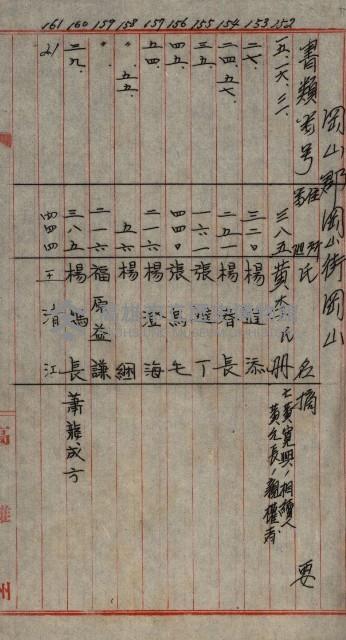 岡山郡岡山街岡山
書類番号 住所番地 氏名 摘要
152 一五、一六、三一、 三八五 黃 民 册 亡黃寬興、相續人 黃 長、親權者
153 二七、 三二〇 楊 添
154 二四、五七、 二五一 楊 春 長
155 三五、 一六一 張 丁
156 四五、 四四〇 張 烏 毛
157 五四、 二一六 楊 澄 海
158 五五、 五六 楊 綑
159 二一六 福原益謙
160 二九、 三八五 楊 長 蕭龍成方
161 21 四四四 王 清 江
高雄州